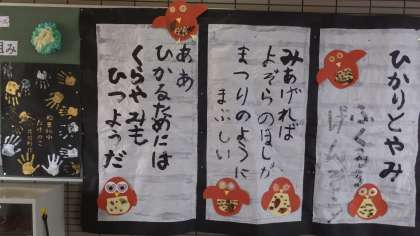 ひかりとやみ
ふくろう
げんぞう
みあげれば
よぞらのほしが
まつりのように
まぶしい
ああ
ひかるためには
くらやみも
ひつようだ
組み
たけのこ